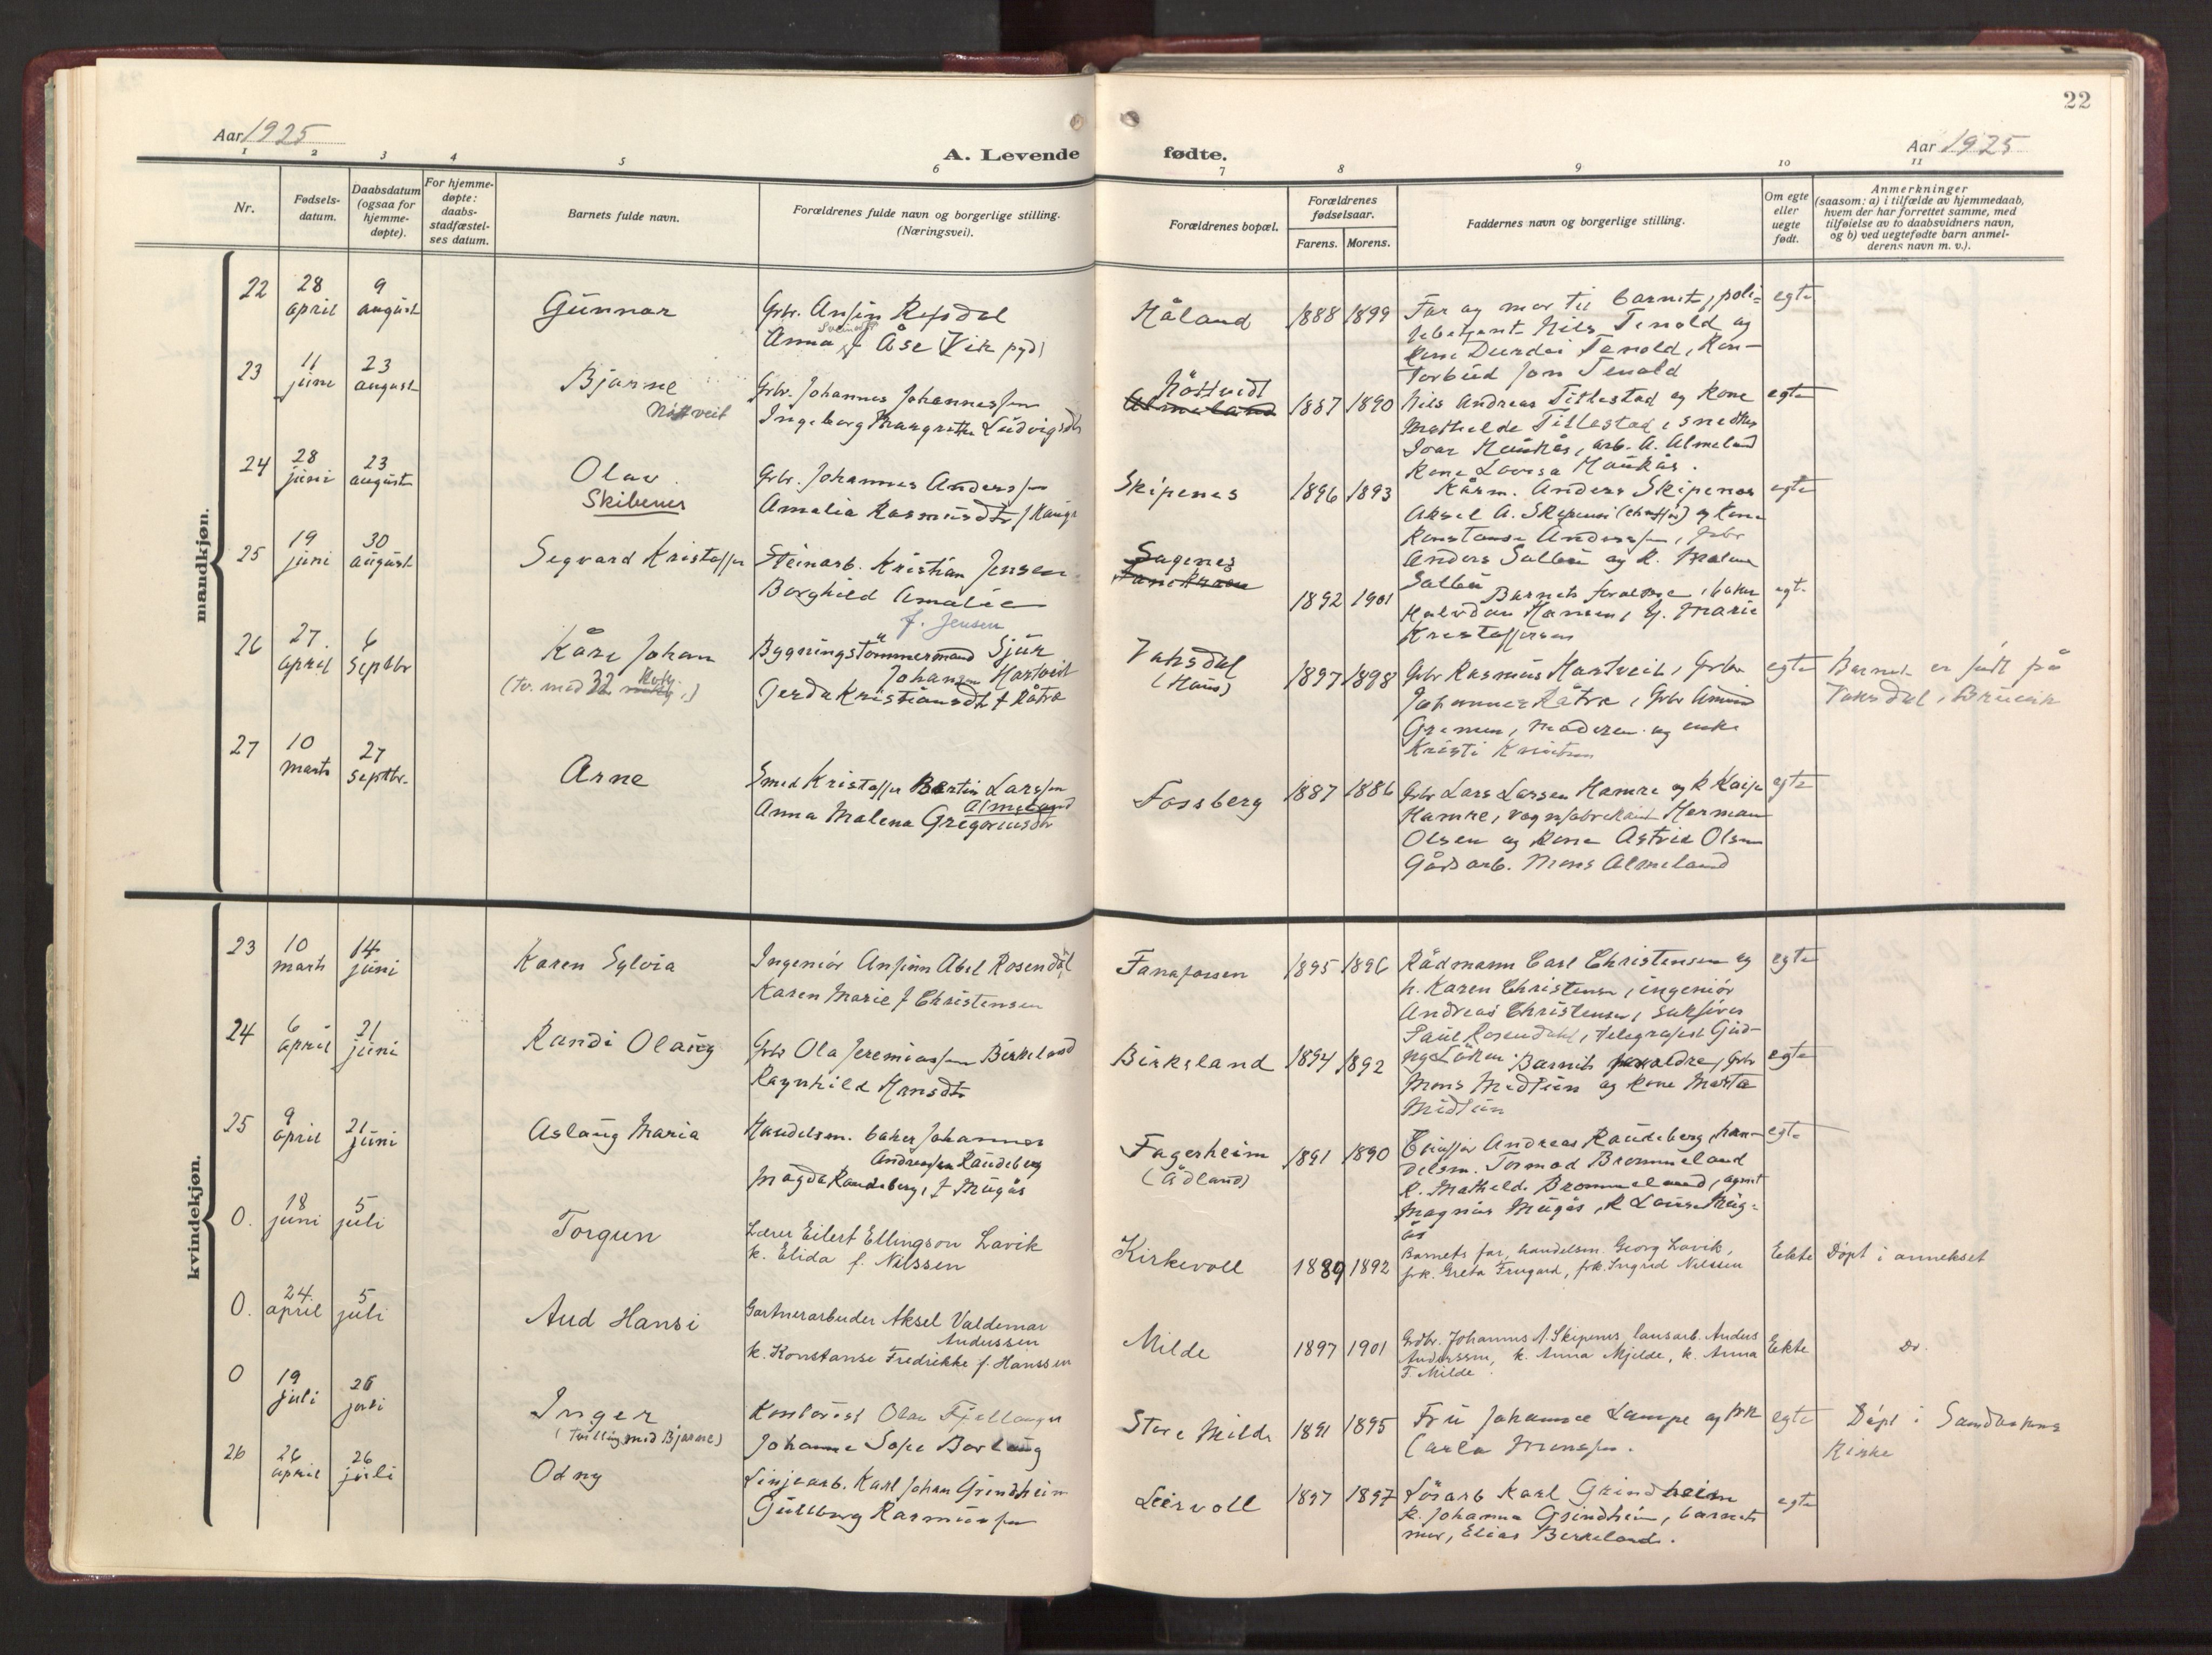 22
Aar 1925
A. Levende fødte.
Aar 1925
1 2 3 4 5 6 7 8 9 10 11
Nr.
Fødsels-
datum.
Daabsdatum
(ogsaa for
hjemme-
døpte).
For hjemme-
døpte:
daabs-
stadfæstel-
ses datum.
Barnets fulde navn.
Forældrenes fulde navn og borgerlige stilling.
(Næringsvei).
Forældrenes bopæl.
Forældrenes
fødselsaar.
Farens. Morens.
Faddernes navn og borgerlige stilling.
Om egte
eller
uegte
født.
Anmerkninger
(saasom: a) i tilfælde av hjemmedaab,
hvem der har forrettet samme, med
tilføielse av to daabsvidners navn,
og b) ved uegtefødte barn anmel-
derens navn m. v.).
mandkjøn.
22
28
april
9
august
Gunnar
Grbr. Ansin Refsdal
Anna f Åse (Vik pgd)
Håland
1888 1899
Far og mor til barnet, poli-
Nils Tenold og
kone Tenold, Kon-
torbud Jon Tenold
egte
23
11
juni
23
august
Bjarne
Nottveit
Grbr. Johannes Johannessen
Ingeborg Margrethe Ludvigsdtr
Nöttveidt
Almeland
1887 1890
Nils Andreas Titlestad og kone
Mathilde Titlestad, smedm
Ivar Haukås, arb. A. Almeland
kone Lovisa Haukås.
egte
24
28
juni
23
august
Olav
Skibenes
Grbr. Johannes Anderssen
Amalia Rasmusdtr f Hauge
Skipenes
1896 1893
Kårm. Anders Skipenes
Aksel A. Skipenes (chaffør) og kone
Konstanse Anderssen, Grbr
Anders Salbu og K. Malene
Salbu
egte
25
19
juni
30
august
Segvard Kristoffer
Steinarb. Kristian Jensen
Borghild Amalie
f. Jensen
Sagenes
1892 1901
Barnets foreldre, baker
Halvdan Hansen, Marie
Kristoffersen
egte
26
27.
april
6
Septbr
Kåre Johan
(tv. med 32 kvky.)
Bygningstömmermand Sjur
Johansen Hartveit
Gerda Kristiansdtr f Råtre
Vaksdal
(Haus)
1897 1898
Grbr Rasmus Hartveit, Grbr
Johannes Råtre, Grbr Amund
Gremen, Moderen og enke
Kristi
egte
Barnet er født på
Vaksdal, Bruvik
27
10
marts
27
septbr.
Arne
Smed Kristoffer Bertin Larssen
Almeland
Anna Malena Gregoriusdtr
Fossberg
1887 1886
Grbr Lars Larsen Hamre og K Kaisa
Hamre, vognfabrikant Herman
Olsen og kone Astrid Olsen
Gårdsarb. Mons Almeland
egte
kvindekjøn.
23
10
marts
14
juni
Karen Sylvia
Ingeniør Ansinn Abel Rosendal
Karen Marie f Christensen
Fanafossen
1895 1896
Rådmann Carl Christensen og
h. Karen Christensen, ingeniør
Andreas Christensen,
Paul Rosendahl, telegrafist
Løken.
egte
24
6
april
21
juni
Randi Olaug
Grbr Ola Jeremiassen Birkeland
Ragnhild Hansdtr
Birkeland
1894 1892
Barnets foreldre, Grbr
Mons Midtun og kone Marta
Midtun
egte
25
9
april
21
juni
Aslaug Maria
Handelsm. baker Johannes
Andreassen Raudeberg
Magda Raudeberg, f Mugås
Fagerheim
(Ådland)
1891 1890
Andreas Raudeberg, han-
delsm. Tormod Brommeland
K. Mathilde Brommeland, agent
Magnus Mugås, K Louise Mug-
ås
egte
0.
18
juni
5
juli
Torgun
Lærer Eilert Ellingson Lavik
k. Elida f. Nilssen
Kirkevoll
1889 1892
Barnets far, handelsm. Georg Lavik,
frk. Greta Frugard, frk. Ingrid Nilssen
Ekte
Döpt i annekset
0.
24.
april
5
juli
Aud Hansi
Gartnerarbeider Aksel Valdemar
Anderssen
k. Konstanse Fredrikke f. Hanssen
Milde
1897 1901
Grdbr. Johannes A. Skipenes, lausarb. Anders
Anderssen, k. Anna Mjelde, k. Anna
F. Milde
Ekte
Do.
0
19
juli
26
juli
Inger
(tvilling med Bjarne)
Kontorist Olav Fjellanger
Johanne Sofie Borlaug
Store Milde
1891 1895
Fru Johanne Lampe og frk
Carla Monssen.
egte
Döpt i Sandvikens
Kirke
26
26
april
26
juli
Odny
Linjearb. Karl Johan Grindheim
Gullborg Rasmussen
Leirvoll
1897 1897
Lösarb Karl Grindheim
k. Johanna Grindheim, barnets
mor, Elias Birkeland.
egte